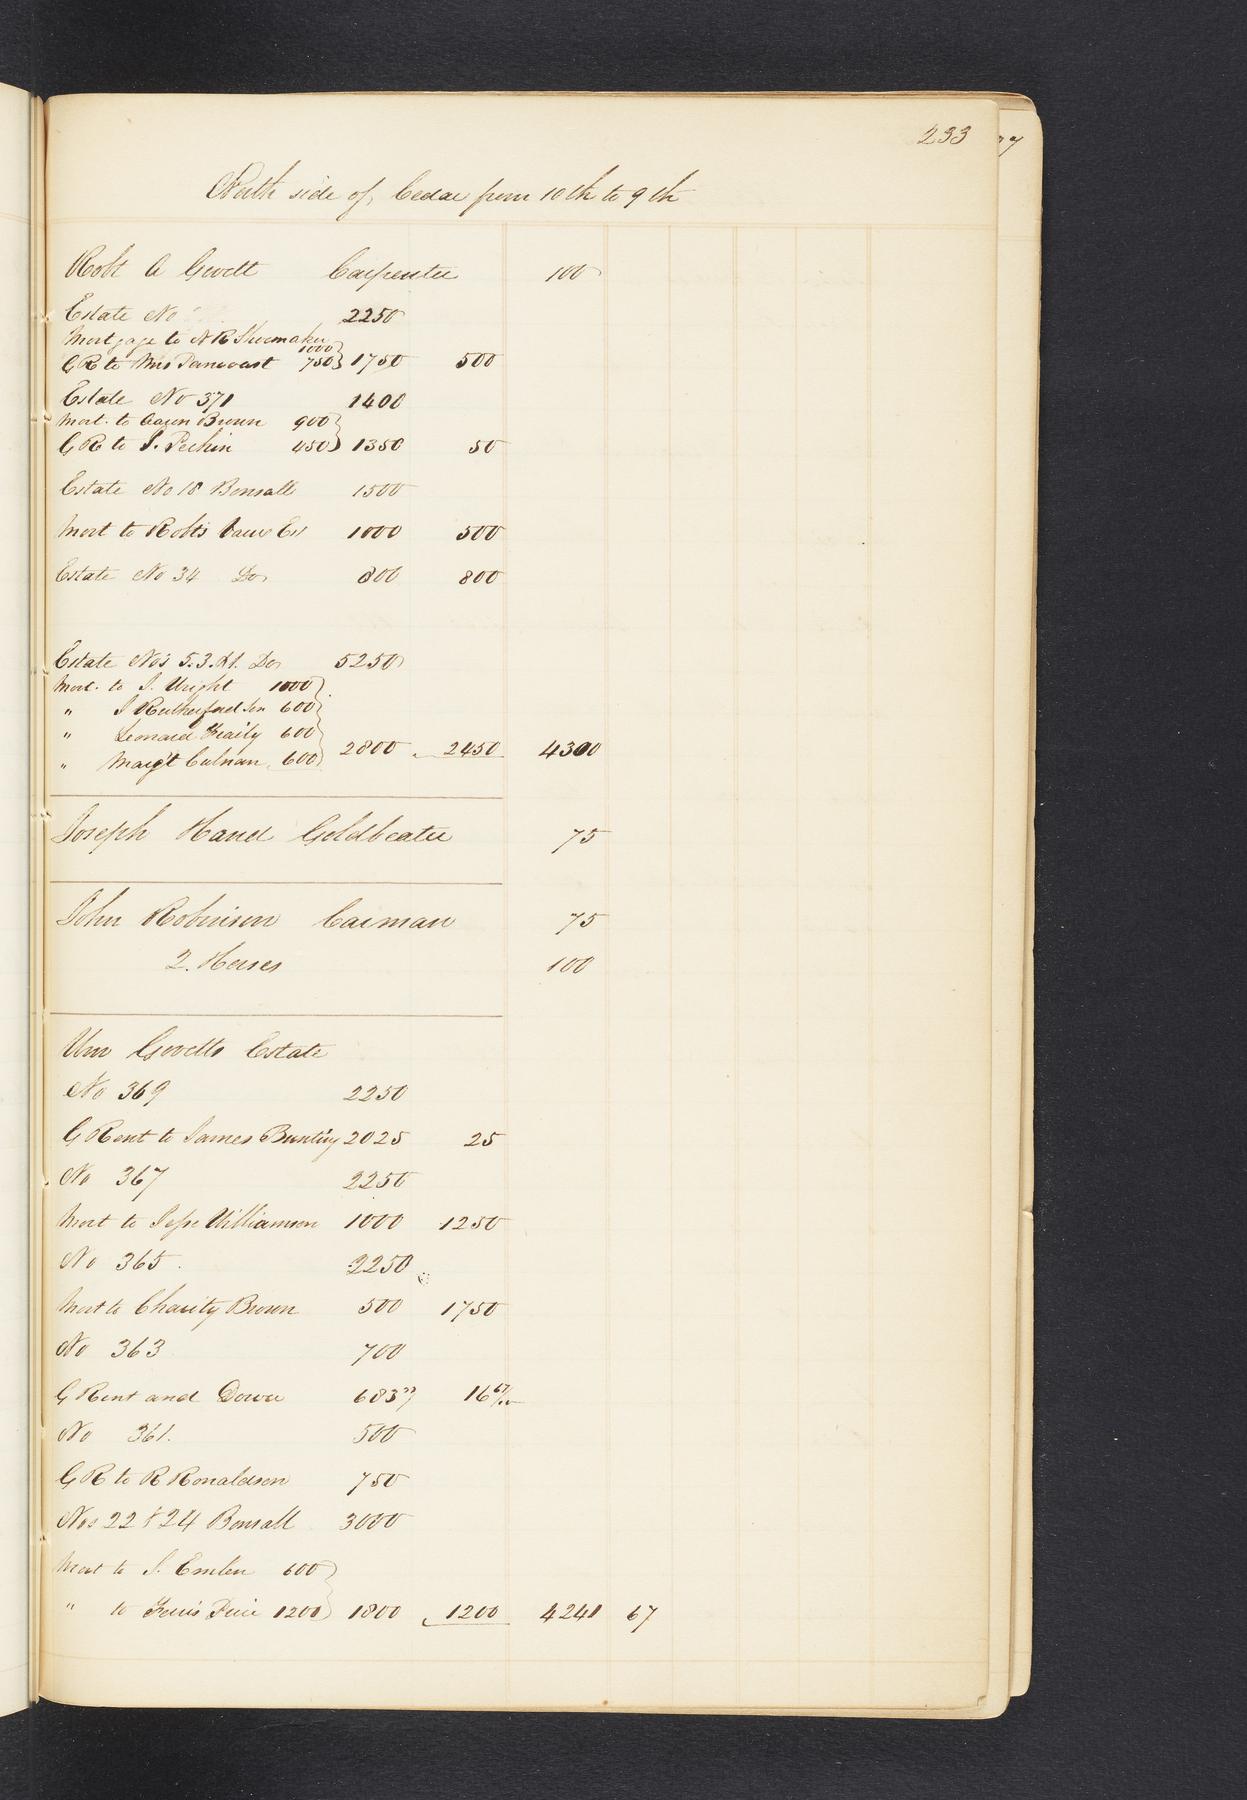 233
North side of Cedar from 10th to 9th
Robt A Govett Carpenter 100
Estate No 2250
Mortgage to N R Shoemaker 1000
G R to Mrs Pancoast 750 1750 500
Estate No 371 1400
Mort. to Aaron Brown 900
G R to S. Pechin 450 1350 50
Estate No 18 Bonsall 1500
Mort to Robts Vaux Est 1000 500
Estate No 34 Do 800 800
Estate Nos 5. 3. & 1. Do 5250
Mort. to I. Wright 1000
" I Rutherford Jun 600
" Leonard 600
" Margt Culnan 600 2800 2450 4300
Joseph Hand Goldbeater 75
John Robinson Carman 75
2. Horses 100
Wm Govetts Estate
No 369 2250
G Rent to James Bunting 2025 25
No 367 2250
Mort to Jesse Williamson 1000 1250
No 365. 2250
Mort to Charity Brown 500 1750
No 363 700
G Rent and Dower 683 16 67/100
No 361. 500
G R to R Ronaldson 750
Nos 22 & 24 Bonsall 3000
Mort to S. Emlen 600
" to Price 1200 1800 1200 4241 67